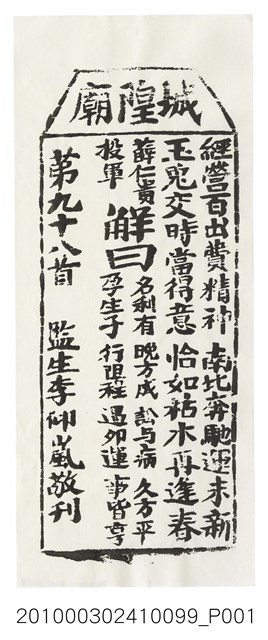 城隍廟
經營百出費精神 南北奔馳運未新
玉兎交時當得意 恰如枯木再逢春
薛仁貴投軍
解曰
名利有 晚方成 訟与病 久方平
孕生子 行阻程 遇卯運 事皆亨
第九十八首 監生李仰嵐敬刊
201000302410099_P001